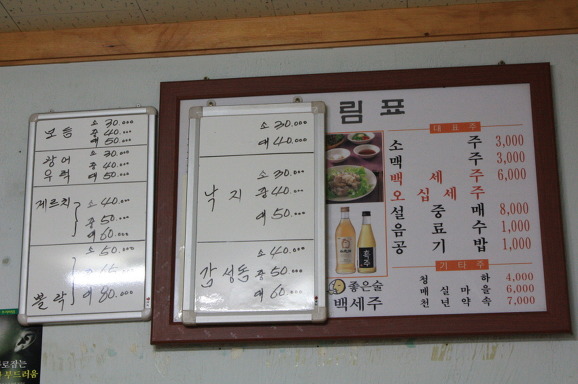 모듬
소 30.000
중 40.000
대 50.000
광어
우럭
소 30.000
중 40.000
대 50.000
게르치
소 40.000
중 50.000
대 60.000
볼락
소 50.000
대 80.000
소 30.000
대 40.000
낙지
소 30.000
중 40.000
대 50.000
감성돔
소 40.000
중 50.000
대 60.000
림표
대표주
소 주 3,000
맥 주 3,000
백 세 주 6,000
오 십 세 주
설 중 매 8,000
음 료 수 1,000
공 기 밥 1,000
기타주
청 하 4,000
매 실 마 을 6,000
천 년 약 속 7,000
좋은술
백세주
부드러움